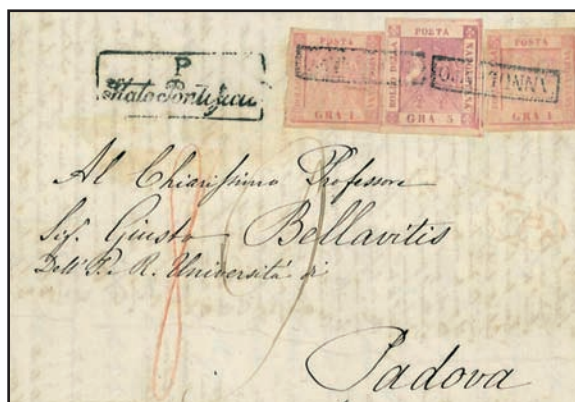 P
Stato Pontificio
POSTA
BOLLO DELLA
NAPOLETANA
GRA 1
POSTA
BOLLO DELLA
NAPOLETANA
GRA 5
POSTA
BOLLO DELLA
NAPOLETANA
GRA 1
ANNULLATO
Al Chiarissimo Professore
Sig. Giusto Bellavitis
Dell' I. R. Università di
Padova